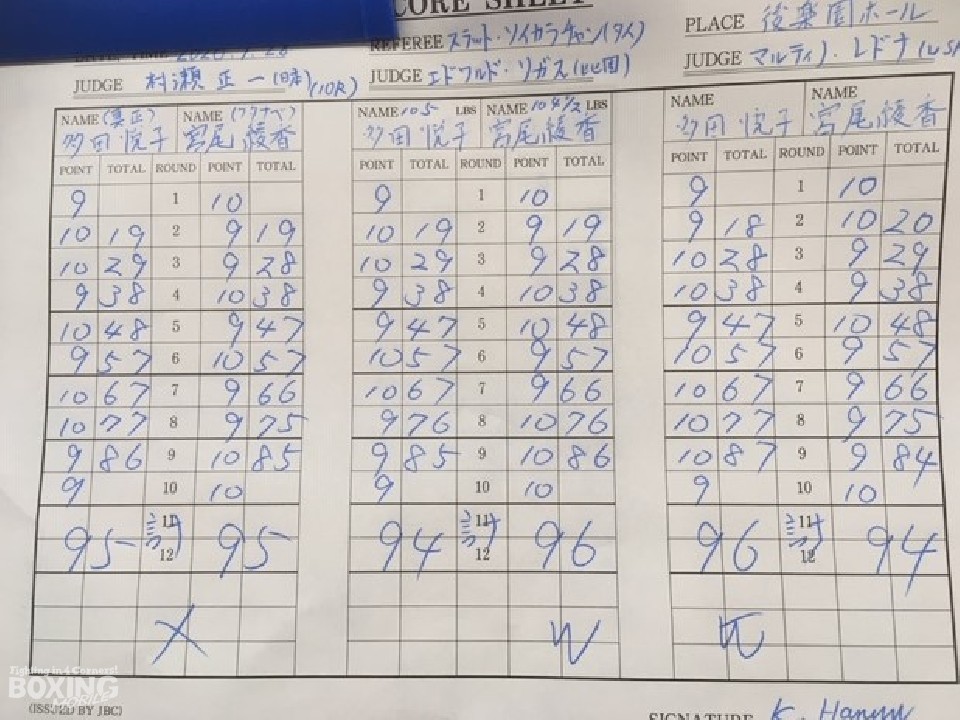 CORE SHEET
REFEREE スラット・ソイカラチャン(タイ)
PLACE 後楽園ホール
JUDGE 村瀬 正一(日本)(10R)
JUDGE エドワルド・リガス(比国)
JUDGE マルティノ・レドナ(レSP
NAME (真正) NAME (ワタナベ)
多田 悦子 宮尾 綾香
POINT TOTAL ROUND POINT TOTAL
9 1 10
10 19 2 9 19
10 29 3 9 28
9 38 4 10 38
10 48 5 9 47
9 57 6 10 57
10 67 7 9 66
10 77 8 9 75
9 86 9 10 85
9 10 10
11
95 計 95
12
NAME 105 LBS NAME 104 1/2 LBS
多田 悦子 宮尾 綾香
POINT TOTAL ROUND POINT TOTAL
9 1 10
10 19 2 9 19
10 29 3 9 28
9 38 4 10 38
9 47 5 10 48
10 57 6 9 57
10 67 7 9 66
9 76 8 10 76
9 85 9 10 86
9 10 10
11
94 計 96
12
W
NAME NAME
多田 悦子 宮尾綾香
POINT TOTAL ROUND POINT TOTAL
9 1 10
9 18 2 10 20
10 28 3 9 29
10 38 4 9 38
9 47 5 10 48
10 57 6 9 57
10 67 7 9 66
10 77 8 9 75
10 87 9 9 84
9 10 10
11
96 計 94
12
Fighting in 4 Corners!
BOXING
MOBILE
(ISSUED BY JBC)
SIGNATURE K.